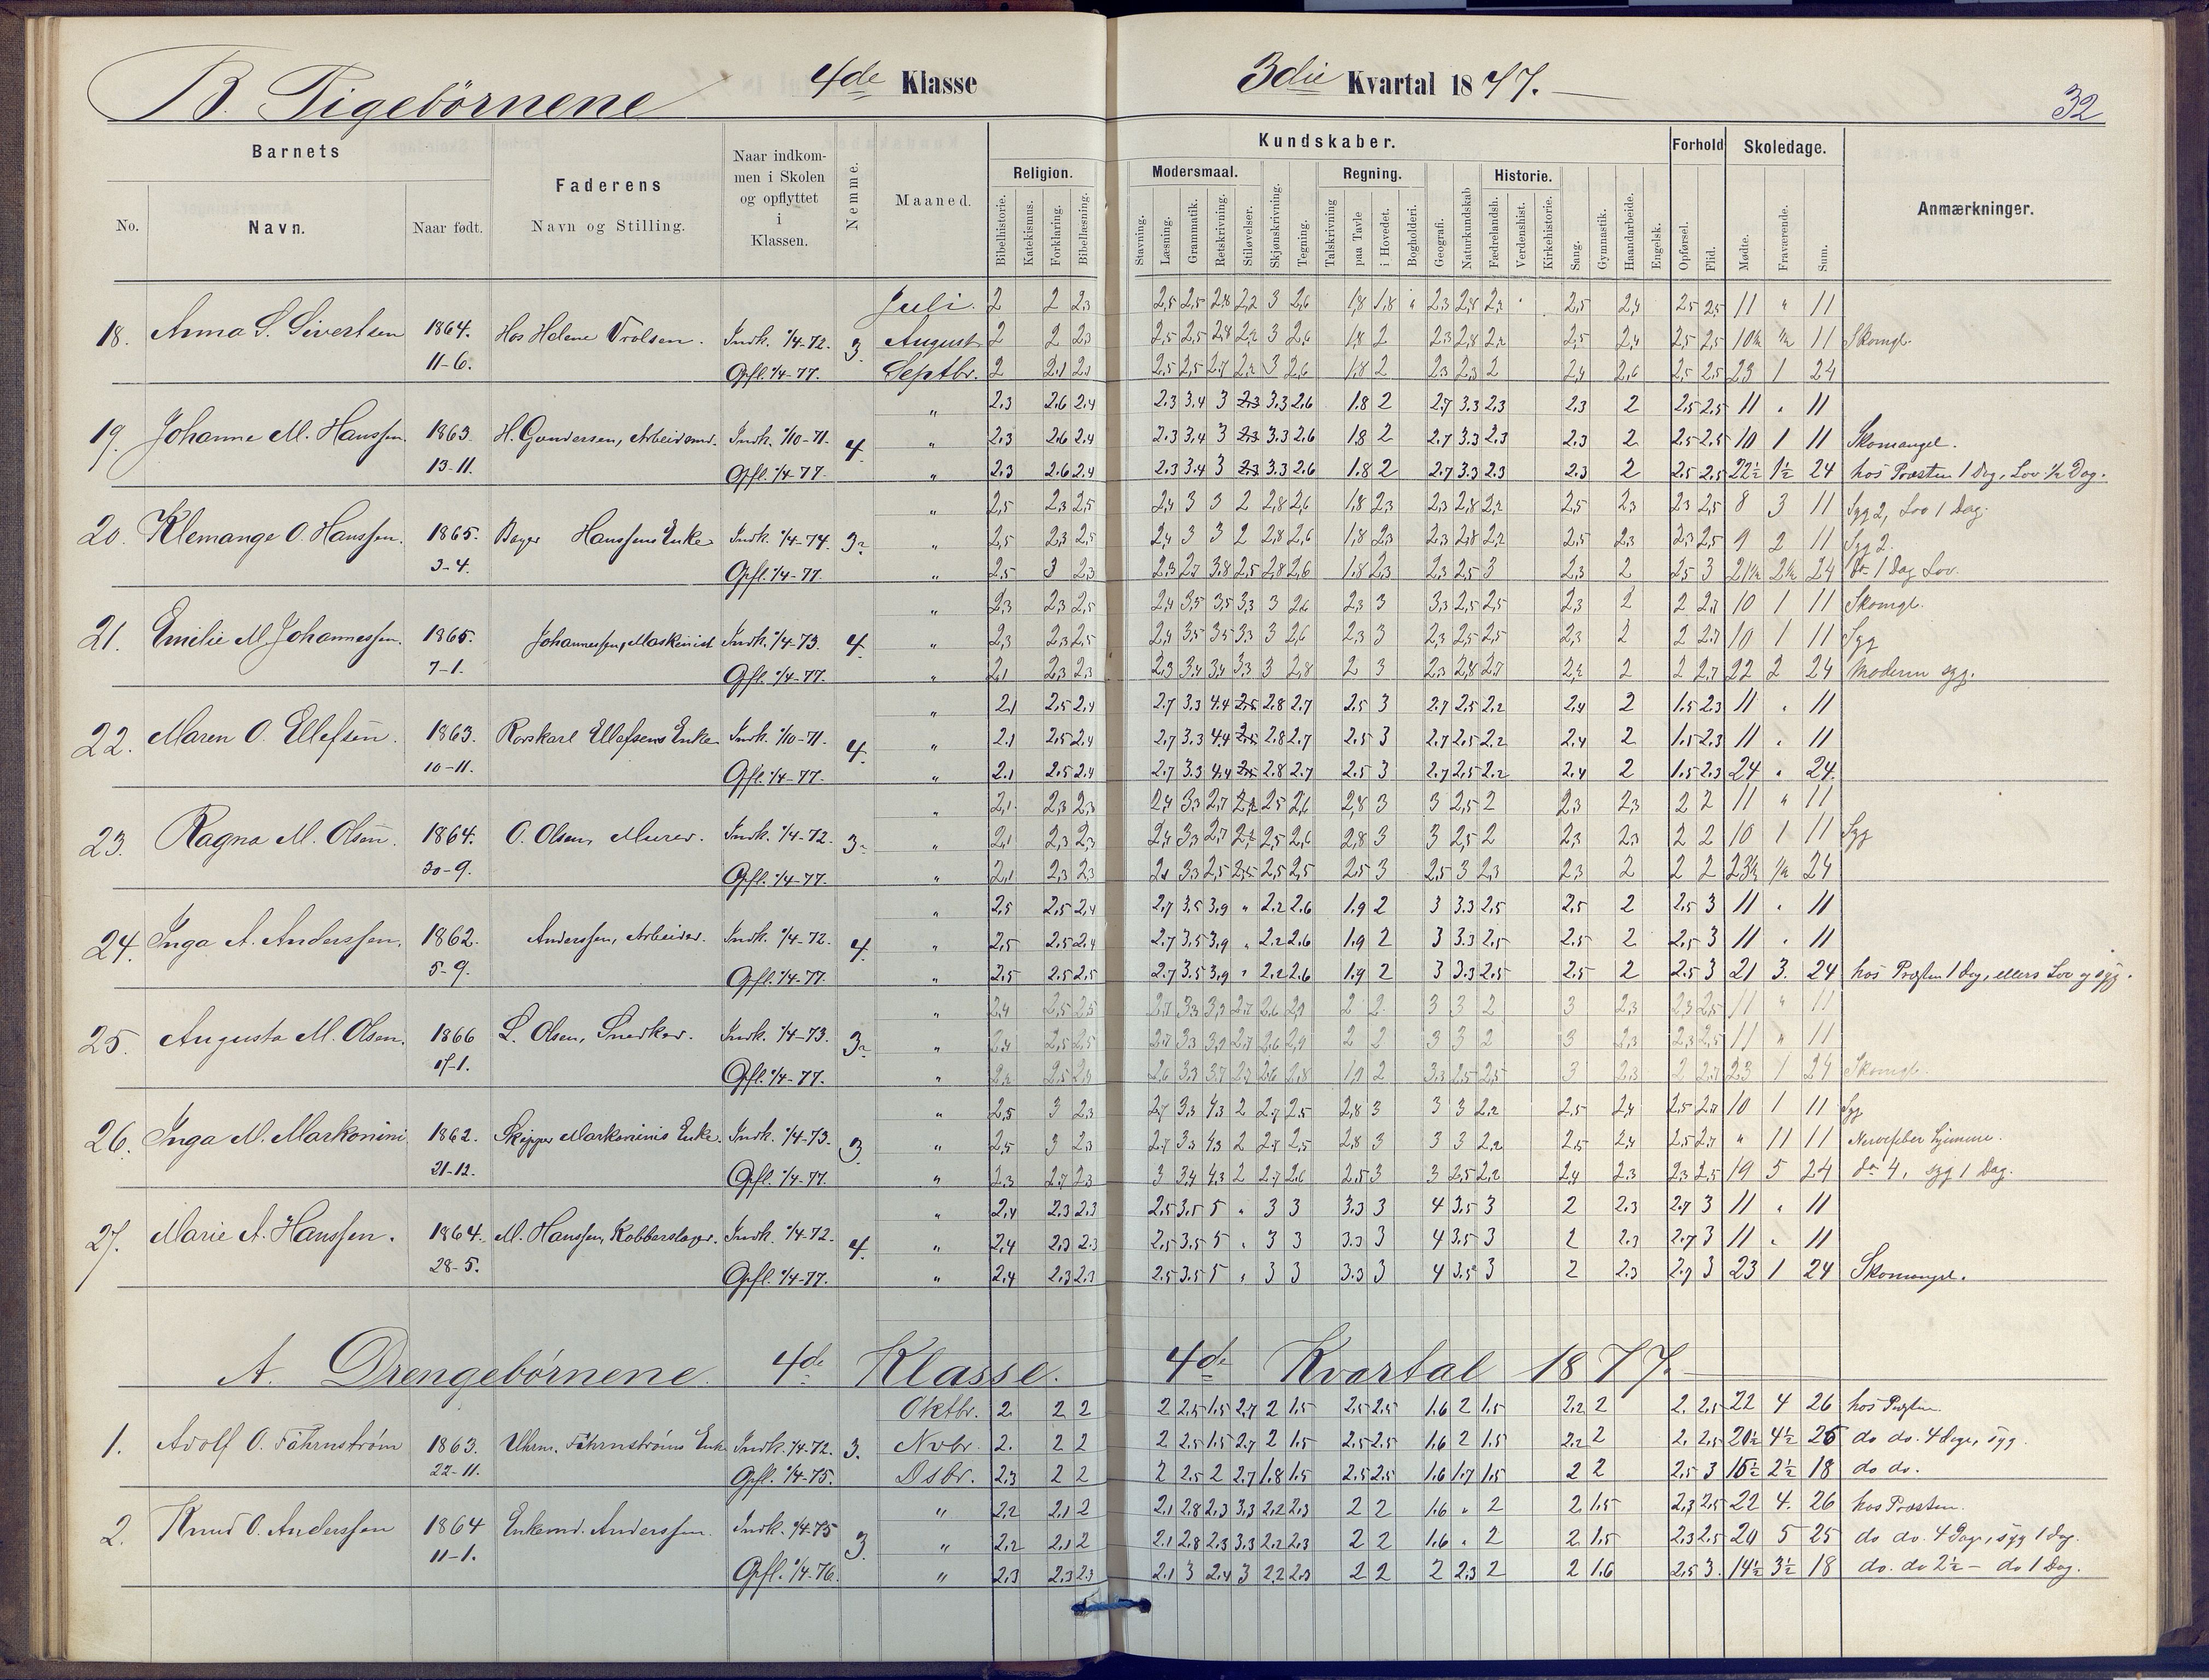 B. Pigebörnene 4de Klasse 3die Kvartal 1877. 32
Barnets
No. Navn. Naar født.
Faderens
Navn og Stilling.
Naar indkom-
men i Skolen
og opflyttet
i
Klassen.
Nemme.
Maaned.
Kundskaber.
Religion.
Bibelhistorie. Katekismus. Forklaring. Bibellæsning.
Modersmaal.
Stavning. Læsning. Grammatik. Retskrivning. Stiløvelser. Skjønskrivning. Tegning.
Regning.
Talskrivning paa Tavle i Hovedet. Bogholderi. Geografi. Naturkundskab
Historie.
Fædrelandsh. Verdenshist. Kirkehistorie. Sang. Gymnastik. Haandarbeide. Engelsk.
Forhold
Opførsel. Flid.
Skoledage.
Mødte. Fraværende. Sum.
Anmærkninger.
Juli. 2 2 2,3 2,5 2,5 2,8 2,2 3 2,6 1,8 1,8 " 2,3 2,8 2,2 2,5 2,4 2,5 2,5 11 " 11
18. Anna S. Sivertsen 1864. Hos Helene Trolsen. Indk. 1/4-72. 3 August 2 2 2,3 2,5 2,5 2,8 2,2 3 2,6 1,8 2 2,3 2,8 2,2 2,5 2,4 2,5 2,5 10½ ½ 11 Skomgl.
11-6. Opfl. 1/4-77. Septbr. 2 2,1 2,1 2,5 2,5 2,7 2,2 3 2,6 1,8 2 2,3 2,3 2 2,4 2,6 2,5 2,5 23 1 24
" 2.3 2.6 2.4 2.3 3.4 3 2.3 3.3 2.6 1.8 2 2.7 3.3 2.3 2.3 2 2.5 2.5 11 " 11
19. Johanne M. Hanssen. 1863. H. Gundersen, Arbeidsmd. Indk. 1/10-71. 4. " 2.3 2.6 2.4 2.3 3.4 3 2.3 3.3 2.6 1.8 2 2.7 3.3 2.3 2.3 2 2.5 2.5 10 1 11 Skomangel.
13-11. Opfl. 1/4-77. " 2.3 2.6 2.4 2.3 3.4 3 2.3 3.3 2.6 1.8 2 2.7 3.3 2.3 2.3 2 2.5 2.5 22½ 1½ 24 hos Præsten 1 Dag, Lov ½ Dag.
" 2,5 2,3 2,5 2,4 3 3 2 2,8 2,6 1,8 2,3 2,3 2,8 2,2 2,5 2,3 2,3 2,5 8 3 11 Syg 2, Lov 1 Dag.
20. Klemange O. Hanssen. 1865. Hanssens Enke Indk. 1/4-74. 3 " 2,5 2,3 2,5 2,4 3 3 2 2,8 2,6 1,8 2,3 2,3 2,8 2,2 2,5 2,3 2,3 2,5 9 2 11 Syg 2.
3-4. Opfl. 1/4-77. " 2,5 3 2,3 2,3 2,7 3,8 2,5 2,8 2,6 1,8 2,3 2,3 2,5 3 2,3 2 2,5 3 21½ 2½ 24 do 1 Dag Lov.
" 2,3 2,3 2,5 2,4 3,5 3,5 3,3 3 2,6 2,3 3 3,3 2,5 2,5 2,3 2 2 2,7 10 1 11 Skomgl.
21. Emilie M. Johannessen. 1865. Johannessen, Maskinist Indk. 1/4-73. 4. " 2,3 2,3 2,5 2,4 3,5 3,5 3,3 3 2,6 2,3 3 2,3 2,5 2,5 2,3 2 2 2,7 10 1 11 Syg
7-1. Opfl. 1/4-77. " 2,1 2,3 2,3 2,3 3,4 3,4 3,3 3 2,8 2 3 2,3 2,8 2,7 2,2 2 2 2,7 22 2 24 Moderen syg.
" 2.1 2.5 2.4 2.7 3.3 4.4 2.5 2.8 2.7 2.5 3 2.7 2.5 2.2 2.4 2 1.5 2.3 11 " 11
22. Maren O. Ellefsen. 1863. Rorskarl Ellefsens Enke Indk. 1/10-71. 4. " 2.1 2.5 2.4 2.7 3.3 4.4 2.5 2.8 2.7 2.5 3 2.7 2.5 2.2 2.4 2 1.5 2.3 11 " 11
10-11. Opfl. 1/4-77. " 2.1 2.5 2.4 2.7 3.3 4.4 2.5 2.8 2.7 2.5 3 2.7 2.5 2.2 2.4 2 1.5 2.3 24 " 24.
" 2,1 2,3 2,3 2,4 3,3 2,7 2,2 2,5 2,6 2,8 3 3 2,5 2 2,3 2,3 2 2 11 " 11
23. Ragna M. Olsen. 1864. O. Olsen, Murer. Indk. 1/4-72. 3 " 2,1 2,3 2,3 2,4 3,3 2,7 2,2 2,5 2,6 2,8 3 3 2,5 2 2,3 2,3 2 2 10 1 11 Syg
30-9. Opfl. 1/4-77. " 2,1 2,3 2,3 2,1 3,3 2,5 2,5 2,5 2,5 2,5 3 2,5 3 2,3 2,3 2 2 2 23½ ½ 24
" 2.5 2.5 2.4 2.7 3.5 3.9 " 2.2 2.6 1.9 2 3 3.3 2.5 2.5 2 2.5 3 11 " 11
24. Inga A. Anderssen. 1862. Anderssen, Arbeider. Indk. 1/4-72. 4. " 2.5 2.5 2.4 2.7 3.5 3.9 " 2.2 2.6 1.9 2 3 3.3 2.5 2.5 2 2.5 3 11 " 11
5-9. Opfl. 1/4-77. " 2.5 2.5 2.5 2.7 3.5 3.9 " 2.2 2.6 1.9 2 3 3.3 2.5 2.5 2 2.5 3 21 3. 24 hos Præsten 1 Dag, ellers Lov og syg.
" 2,4 2,5 2,5 2,7 3,3 3,9 2,7 2,6 2,9 2 2 3 3 2 3 2,3 2,3 2,5 11 " 11
25. Augusta M. Olsen. 1866 L. Olsen, Snedker. Indk. 1/4-73. 3 " 2,4 2,5 2,5 2,7 3,3 3,9 2,7 2,6 2,9 2 2 3 3 2 3 2,3 2,3 2,5 11 " 11
Opfl. 1/4-77. " 3,3 3,7 2,6 2,8 1,9 2 3,3 2,5 2,5 3 2,3 2 2,7 23 1 24 Skomgl.
" 2,5 3 2,3 2,7 3,3 4,3 2 2,7 2,5 2,8 3 3 3 2,2 2,5 2,4 2,5 2,7 10 1 11 Syg
26. Inga M. Markonini 1862. Skipper Markoninis Enke. Indk. 1/4-73. 3 " 2,5 3 2,3 2,7 3,3 4,3 2 2,7 2,5 2,8 3 3 3 2,2 2,5 2,4 2,5 2,7 " 11 11 Nervefeber hjemme.
21-12. Opfl. 1/4-77. " 2,3 2,7 2,3 3 3,4 4,3 2 2,7 2,6 2,5 3 3 2,5 2,2 2,4 2,3 2,3 2,5 19 5 24 do 4, syg 1 Dag.
" 2.4 2.3 2.3 2.5 3.5 5 " 3 3 3.3 3 4 3.5 3 2 2.3 2.7 3 11 " 11
27. Marie A. Hanssen. 1864. M. Hanssen, Kobberslager. Indk. 1/4-72. 4. " 2.4 2.3 2.3 2.5 3.5 5 " 3 3 3.3 3 4 3.5 3 2 2.3 2.7 3 11 " 11
28-5. Opfl. 1/4-77. " 2.4 2.3 2.3 2.5 3.5 5 " 3 3 3.3 3 4 3.5 3 2 2.3 2.7 3 23 1 24 Skomangel.
A. Drengebörnene. 4de Klasse. 4de Kvartal 1877.
Oktbr. 2 2 2 2 2.5 1.5 2.7 2 1.5 2.5 2.5 1.6 2 1.5 2.2 2 2. 2.5 22 4 26 hos Præsten.
1. Adolf O. Fåhrnstrøm 1863. Uhrm. Fåhrnstrøms Enke Indk. 1/4-72. 3. Nvbr. 2. 2 2 2 2.5 1.5 2.7 2 1.5 2.5 2.5 1.6 2 1.5 2.2 2 2. 2.5 20½ 4½ 25 do do. 4 Dage, syg.
22-11. Opfl. 1/4-75. Dsbr. 2.3 2 2 2 2.5 2 2.7 1.8 1.5 2.5 2.5 1.6 1.7 1.5 2 2 2.5 3 15½ 2½ 18 do do.
" 2.2 2.1 2 2.1 2.8 2.3 3.3 2.2 2.3 2 2 1.6 " 2 2 1.5 2.3 2.5 22 4. 26 hos Præsten.
2. Knud O. Anderssen 1864 Enkemd. Anderssen. Indk. 1/4-75 3 " 2.2 2.1 2 2.1 2.8 2.3 3.3 2.2 2.3 2 2 1.6 " 2 2 1.5 2.3 2.5 20 5 25 do do. 4 Dage, syg 1 Dag.
11-1. Opfl. 1/4-76. " 2.3 2.3 2.3 2.1 3 2.4 3 2.2 2.3 2 2 2 2.3 2 2 1.6 2.5 3. 14½ 3½ 18 do. do 2½ - do 1 Dag.